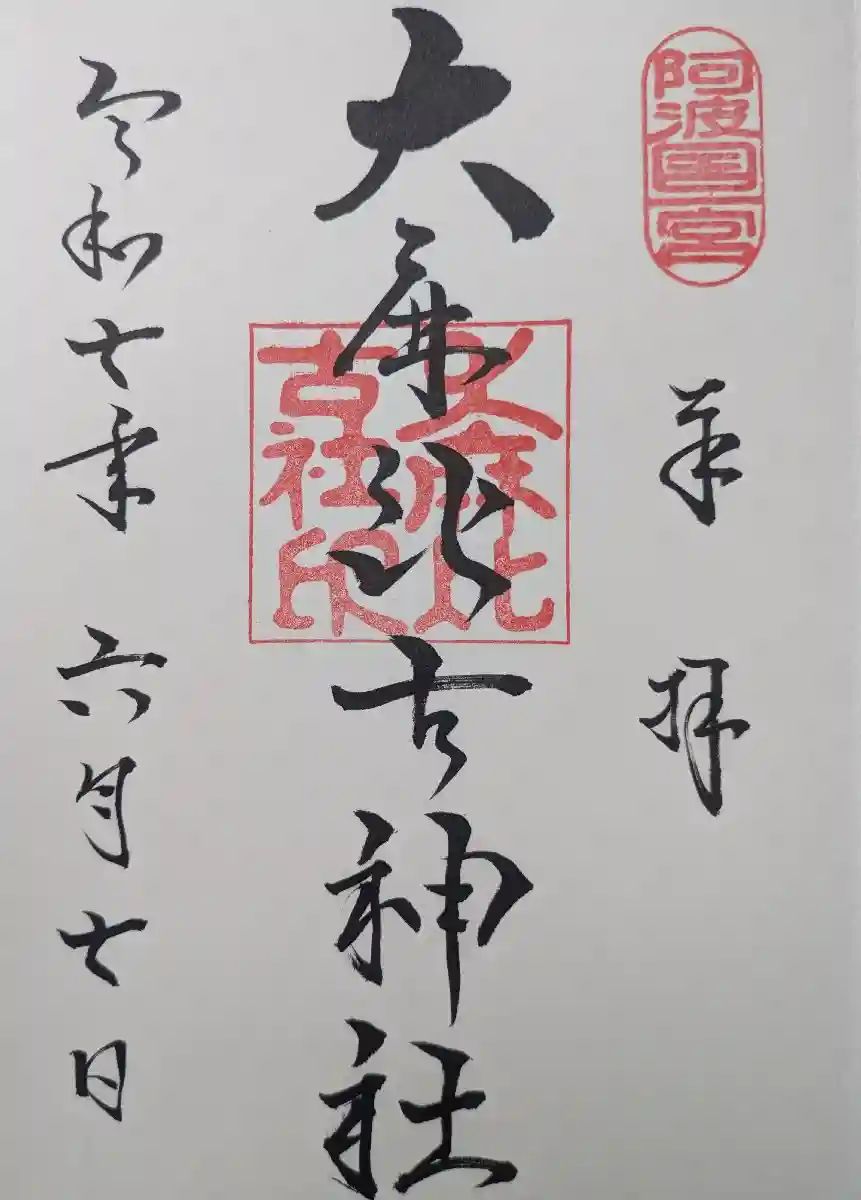 阿波国一宮
奉拝
大麻比古神社
大麻比古社印
令和七年 六月七日